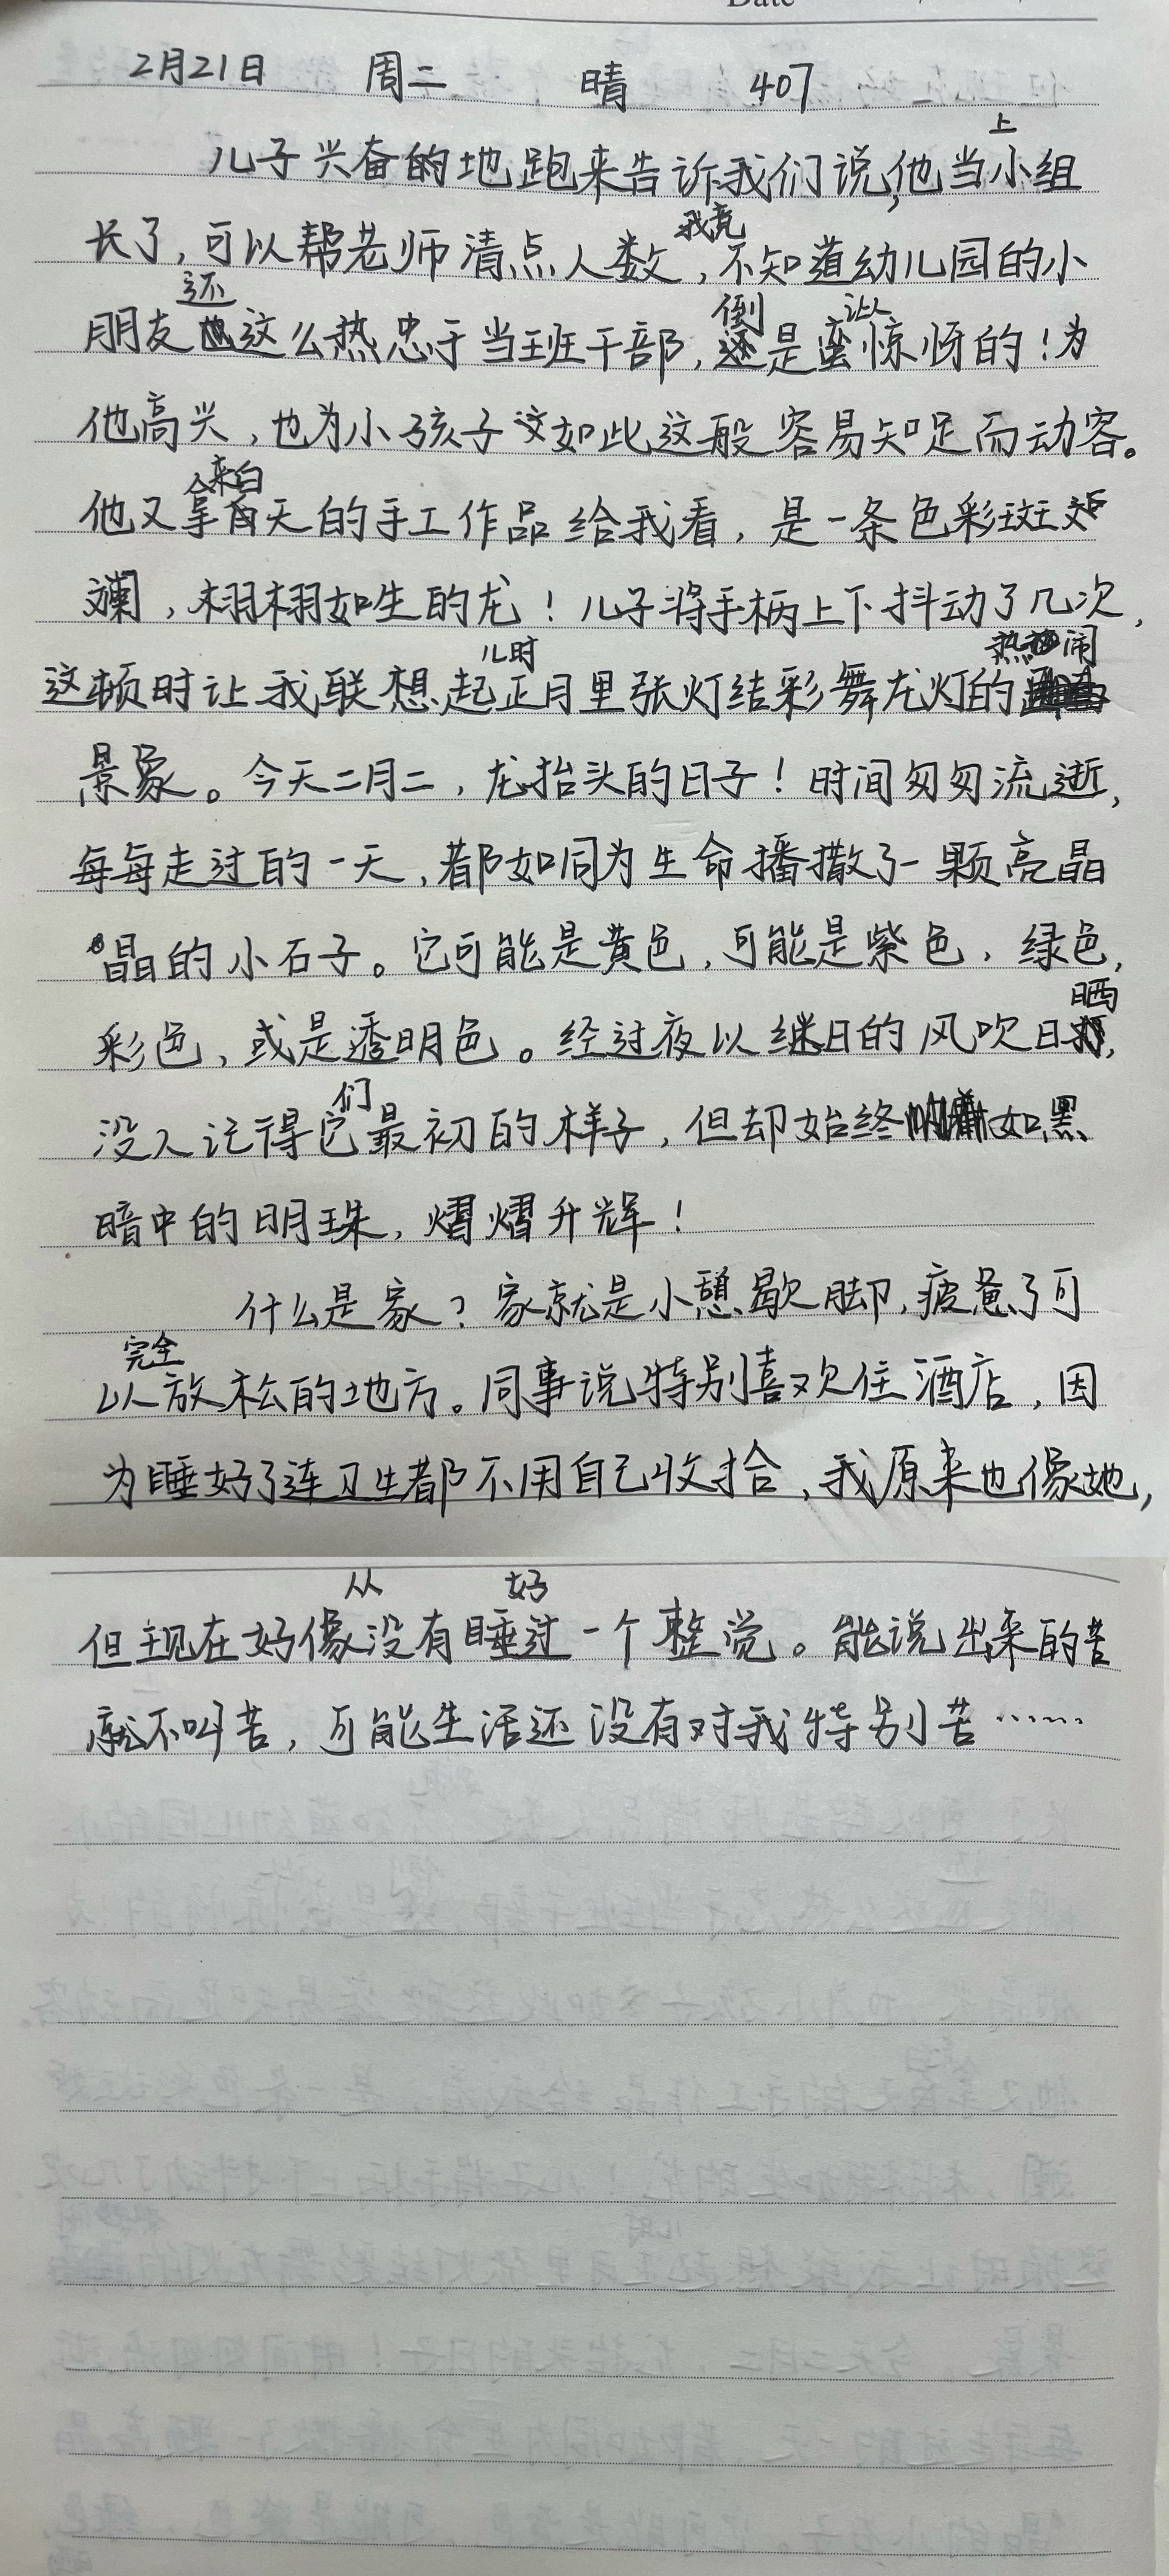 Date
2月21日 周二 晴 407
儿子兴奋的地跑来告诉我们说,他当上小组
长了,可以帮老师清点人数,我竟不知道幼儿园的小
朋友还这么热忠于当班干部,倒是让人惊讶的!为
他高兴,也为小孩子如此这般容易知足而动容。
他又拿来白天的手工作品给我看,是一条色彩斑
斓,栩栩如生的龙!儿子将手柄上下抖动了几次,
这顿时让我联想起儿时正月里张灯结彩舞龙灯的热闹
景象。今天二月二,龙抬头的日子!时间匆匆流逝,
每每走过的一天,都如同为生命播撒了一颗亮晶
晶的小石子。它可能是黄色,可能是紫色,绿色,
彩色,或是透明色。经过夜以继日的风吹日晒,
没人记得它们最初的样子,但却始终如黑
暗中的明珠,熠熠升辉!
什么是家?家就是小憩歇脚,疲惫了可
以完全放松的地方。同事说特别喜欢住酒店,因
为睡好了连卫生都不用自己收拾,我原来也像她,
但现在好像从没有睡好过一个整觉。能说出来的苦
就不叫苦,可能生活还没有对我特别苦……